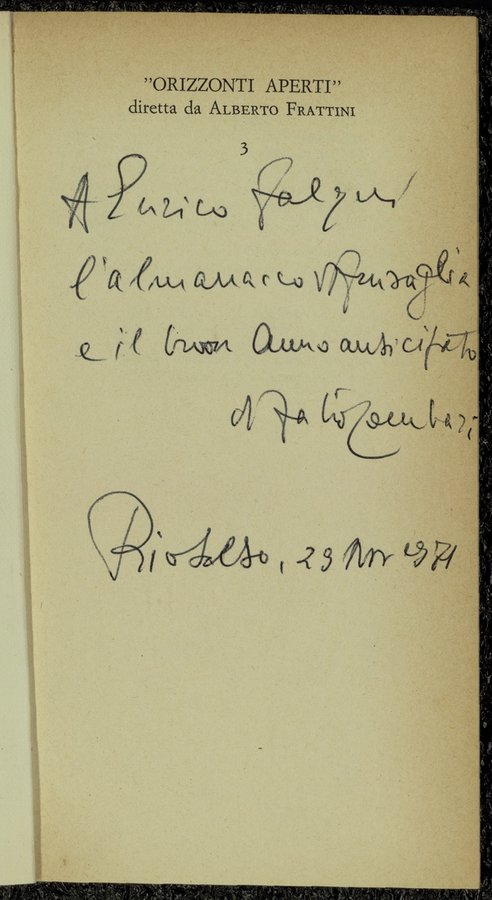 "ORIZZONTI APERTI"
diretta da ALBERTO FRATTINI
3
A Enrico Falqui
l'almanacco
e il buon Anno anticipato
di Fabio Tombari
Rio Salso, 29 Nov 1971